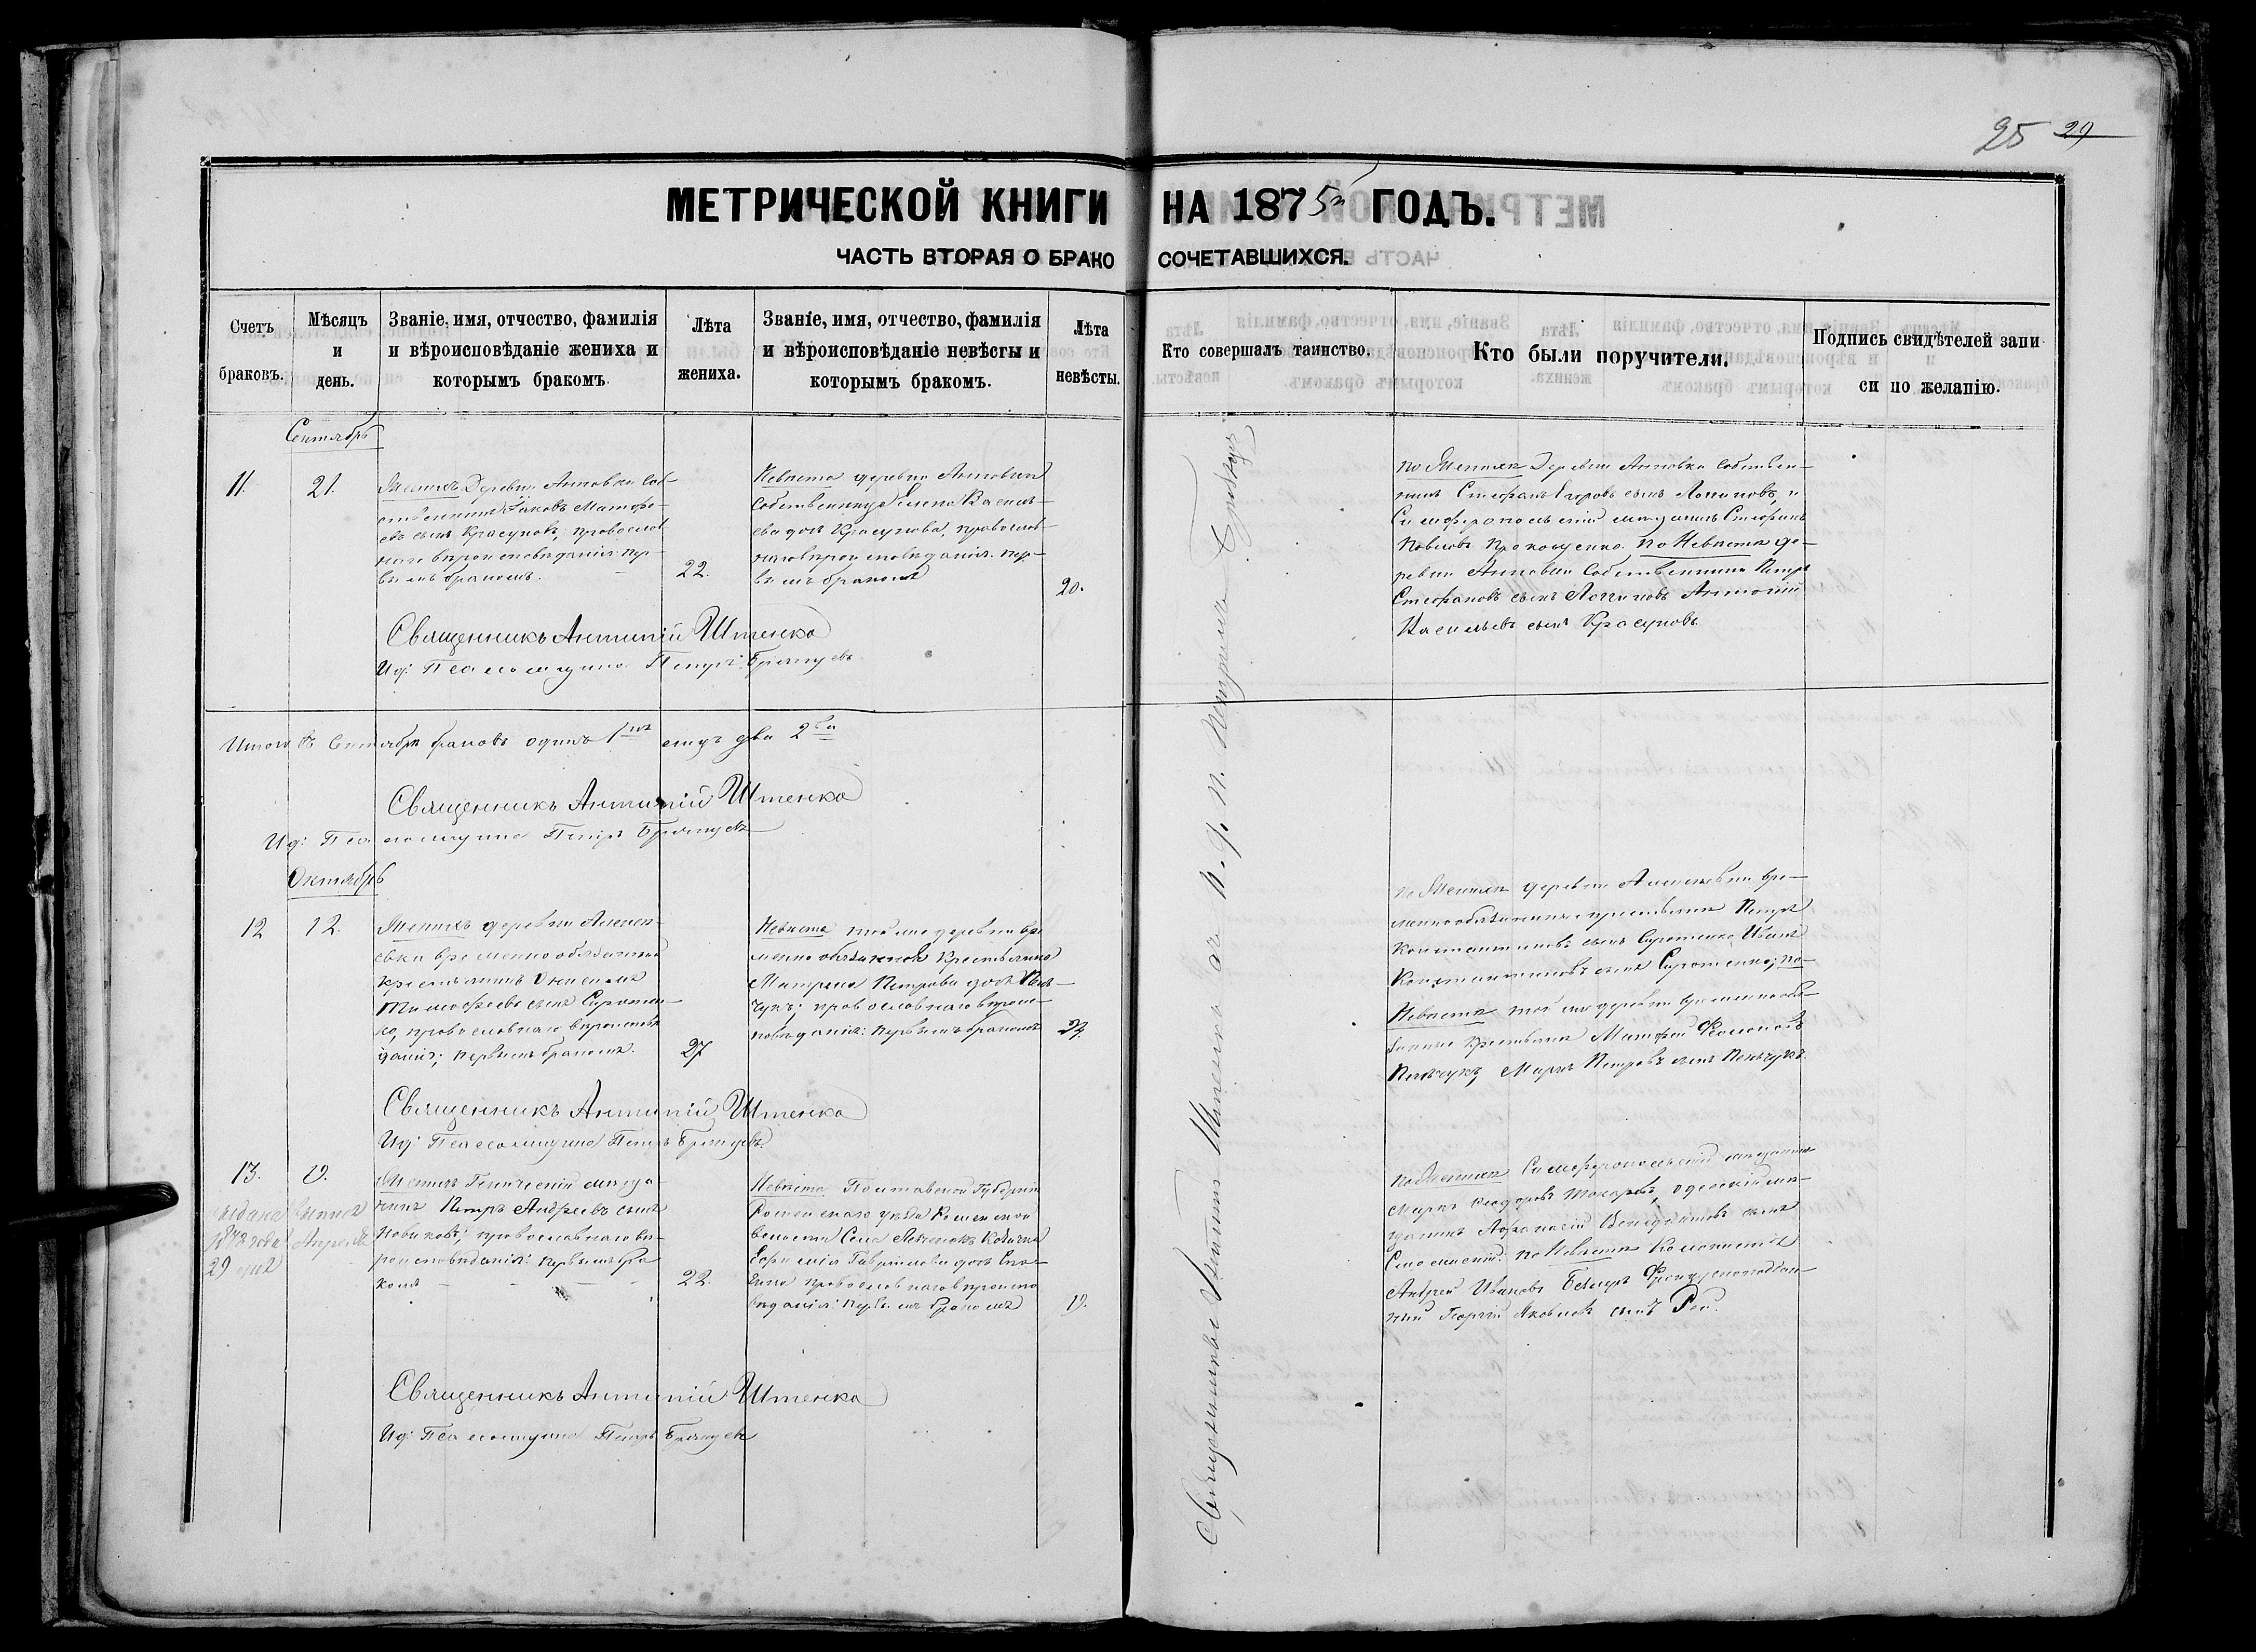 25 29
МЕТРИЧЕСКОЙ КНИГИ НА 1875й ГОДЪ.
ЧАСТЬ ВТОРАЯ О БРАКОСОЧЕТАВШИХСЯ.
Счетъ браковъ.
Мѣсяцъ и день.
Званіе, имя, отчество, фамилія
и вѣроисповѣданіе жениха и
которымъ бракомъ.
Лѣта жениха.
Званіе, имя, отчество, фамилія
и вѣроисповѣданіе невѣсты и
которымъ бракомъ.
Лѣта невѣсты.
Кто совершалъ таинство.
Кто были поручители.
Подпись свидѣтелей запи
си по желанію.
Сентябрь
11.
21.
Женихъ Деревни Анновки Соб-
ственникъ Яковъ Матфе-
евъ сынъ Красуновъ, православ
наго вѣроисповѣданія пер-
вымъ бракомъ.
22.
Невѣста деревни Анновки
Собственница Елена Василь-
ева дочь Красунова, православ-
наго вѣроисповѣданія. пер-
вымъ бракомъ
20.
по Женихѣ Деревни Анновки собствен-
никъ Стефанъ сынъ Логиновъ, и
Симферопольскій мѣщанинъ Стефанъ
Павловъ Прокощенко. По Невѣстѣ де-
ревни Анновки Собственники Петръ
Стефановъ сынъ Логиновъ Антоній
Васильевъ сынъ Красуновъ
Священникъ Антипій Штенко
Ид: Псаломщика Петръ Брянцевъ
Итого въ Сентябрѣ браковъ одинъ 1нъ лицъ два 2ва
Священникъ Антипій Штенко
Ид: Псаломщика Петръ Брянцевъ
Октябрь
12
12.
Женихъ деревни Алексе-
евки временнообязанный
крестьянинъ
Тимофеевъ сынъ Сиротен-
ко, православнаго вѣроисповѣ
данія; первымъ бракомъ.
27
Невѣста той же деревни вре
меннообязанной Крестьянина
Матрена Петрова дочь
православнаго вѣроис-
повѣданія: первымъ бракомъ
по Женихѣ деревни Алексеевки вре-
меннообязанные крестьяне Петръ
Константиновъ сынъ Сиротенко, Иванъ
Константиновъ сынъ Сиротенко; по
Невѣстѣ той же деревни временнообя-
занные Крестьяне Матфей
Маркъ Петровъ сынъ
Священникъ Антипій Штенко
Ид: Псаломщика Петръ Брянцевъ
13.
Женихъ Геническій мѣща-
нинъ Петръ Андреевъ сынъ
Новиковъ, православнаго вѣ-
роисповѣданія: первымъ бра
комъ
22.
Невѣста Полтавской Губерніи
Роменскаго уѣзда Роменской
волости Села
Ефимія Гавриилова дочь
православнаго вѣроиспо
вѣданія: первымъ бракомъ
по Женихѣ Симферопольскій мѣщанинъ
Маркъ Ѳеодоровъ Токаревъ, Одесскій мѣ-
щанинъ Афанасій сынъ
по Невѣстѣ Колонистъ
Андрей Ивановъ Французскоподдан-
ный Георгій Яковлевъ сынъ Рей.
Священникъ Антипій Штенко
Ид: Псаломщика Петръ Брянцевъ